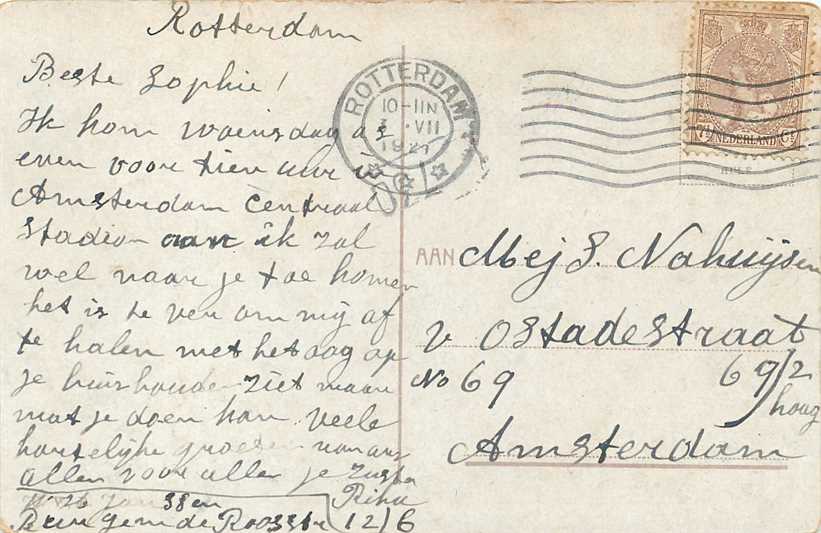 Rotterdam
Beste Sophie!
Ik kom woensdag as
even voor tien uur in
Amsterdam Centraal
Stadion aan ik zal
wel naar je toe komen
het is te ver om mij af
te halen met het oog op
je huishouden ziet maar
wat je doen kan veele
hartelijke groeten van ons
allen voor allen je Zuster
Rika
ROTTERDAM
10-11N
VII
1921
7½ NEDERLAND Ct
AAN Mej S. Nahuijsen
v Ostadestraat
No 69 69/2
hoog
Amsterdam
12/6